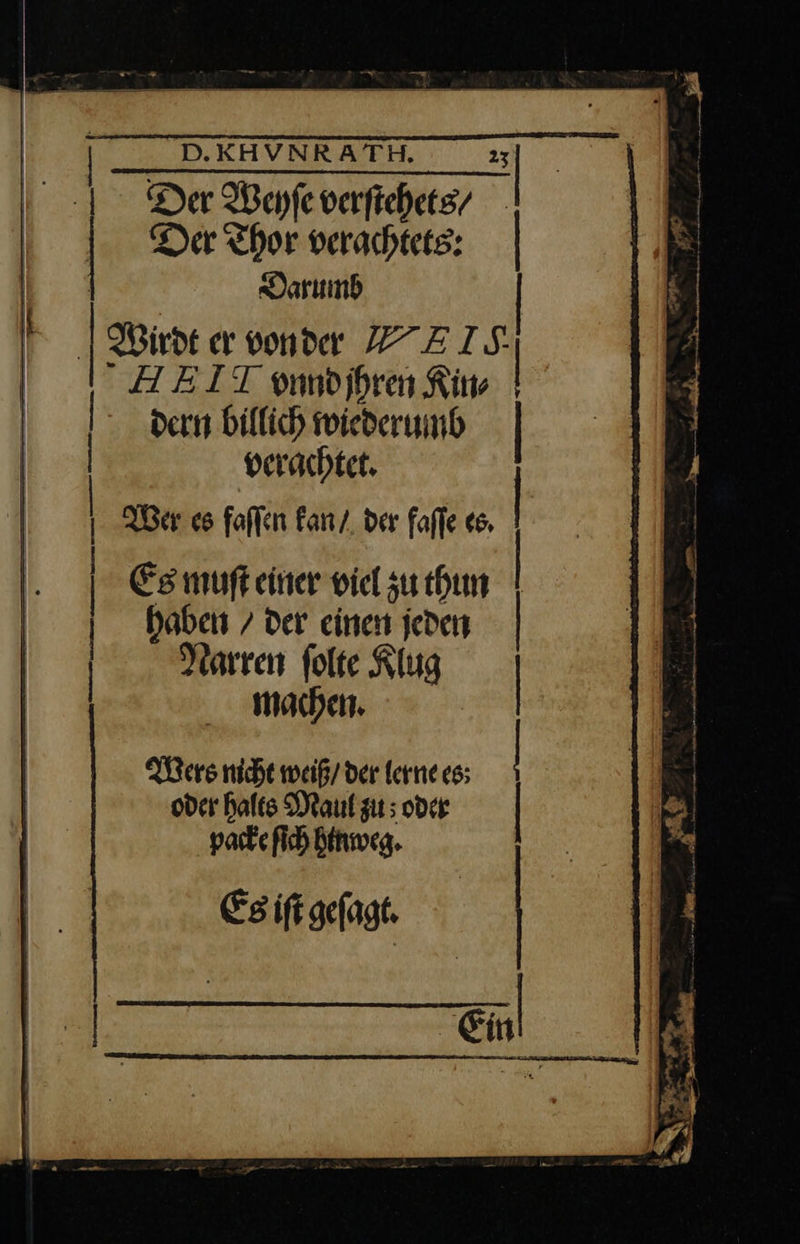 D. KHVNRATH. 23
Der Weyſe verſtehets/
Der Thor verachtets:
Darumb
Wirdt er von der WEIS-
HEIT vnnd jhren Kin⸗
dern billich wiederumb
verachtet.
Wer es faſſen kan/ der faſſe es.
Es muſt einer viel zu thun
haben / der einen jeden
Narren ſolte Klug
machen.
Wers nicht weiß/ der lerne es;
oder halts Maul zu; oder
packe ſich hinweg.
Es iſt geſagt.
Ein